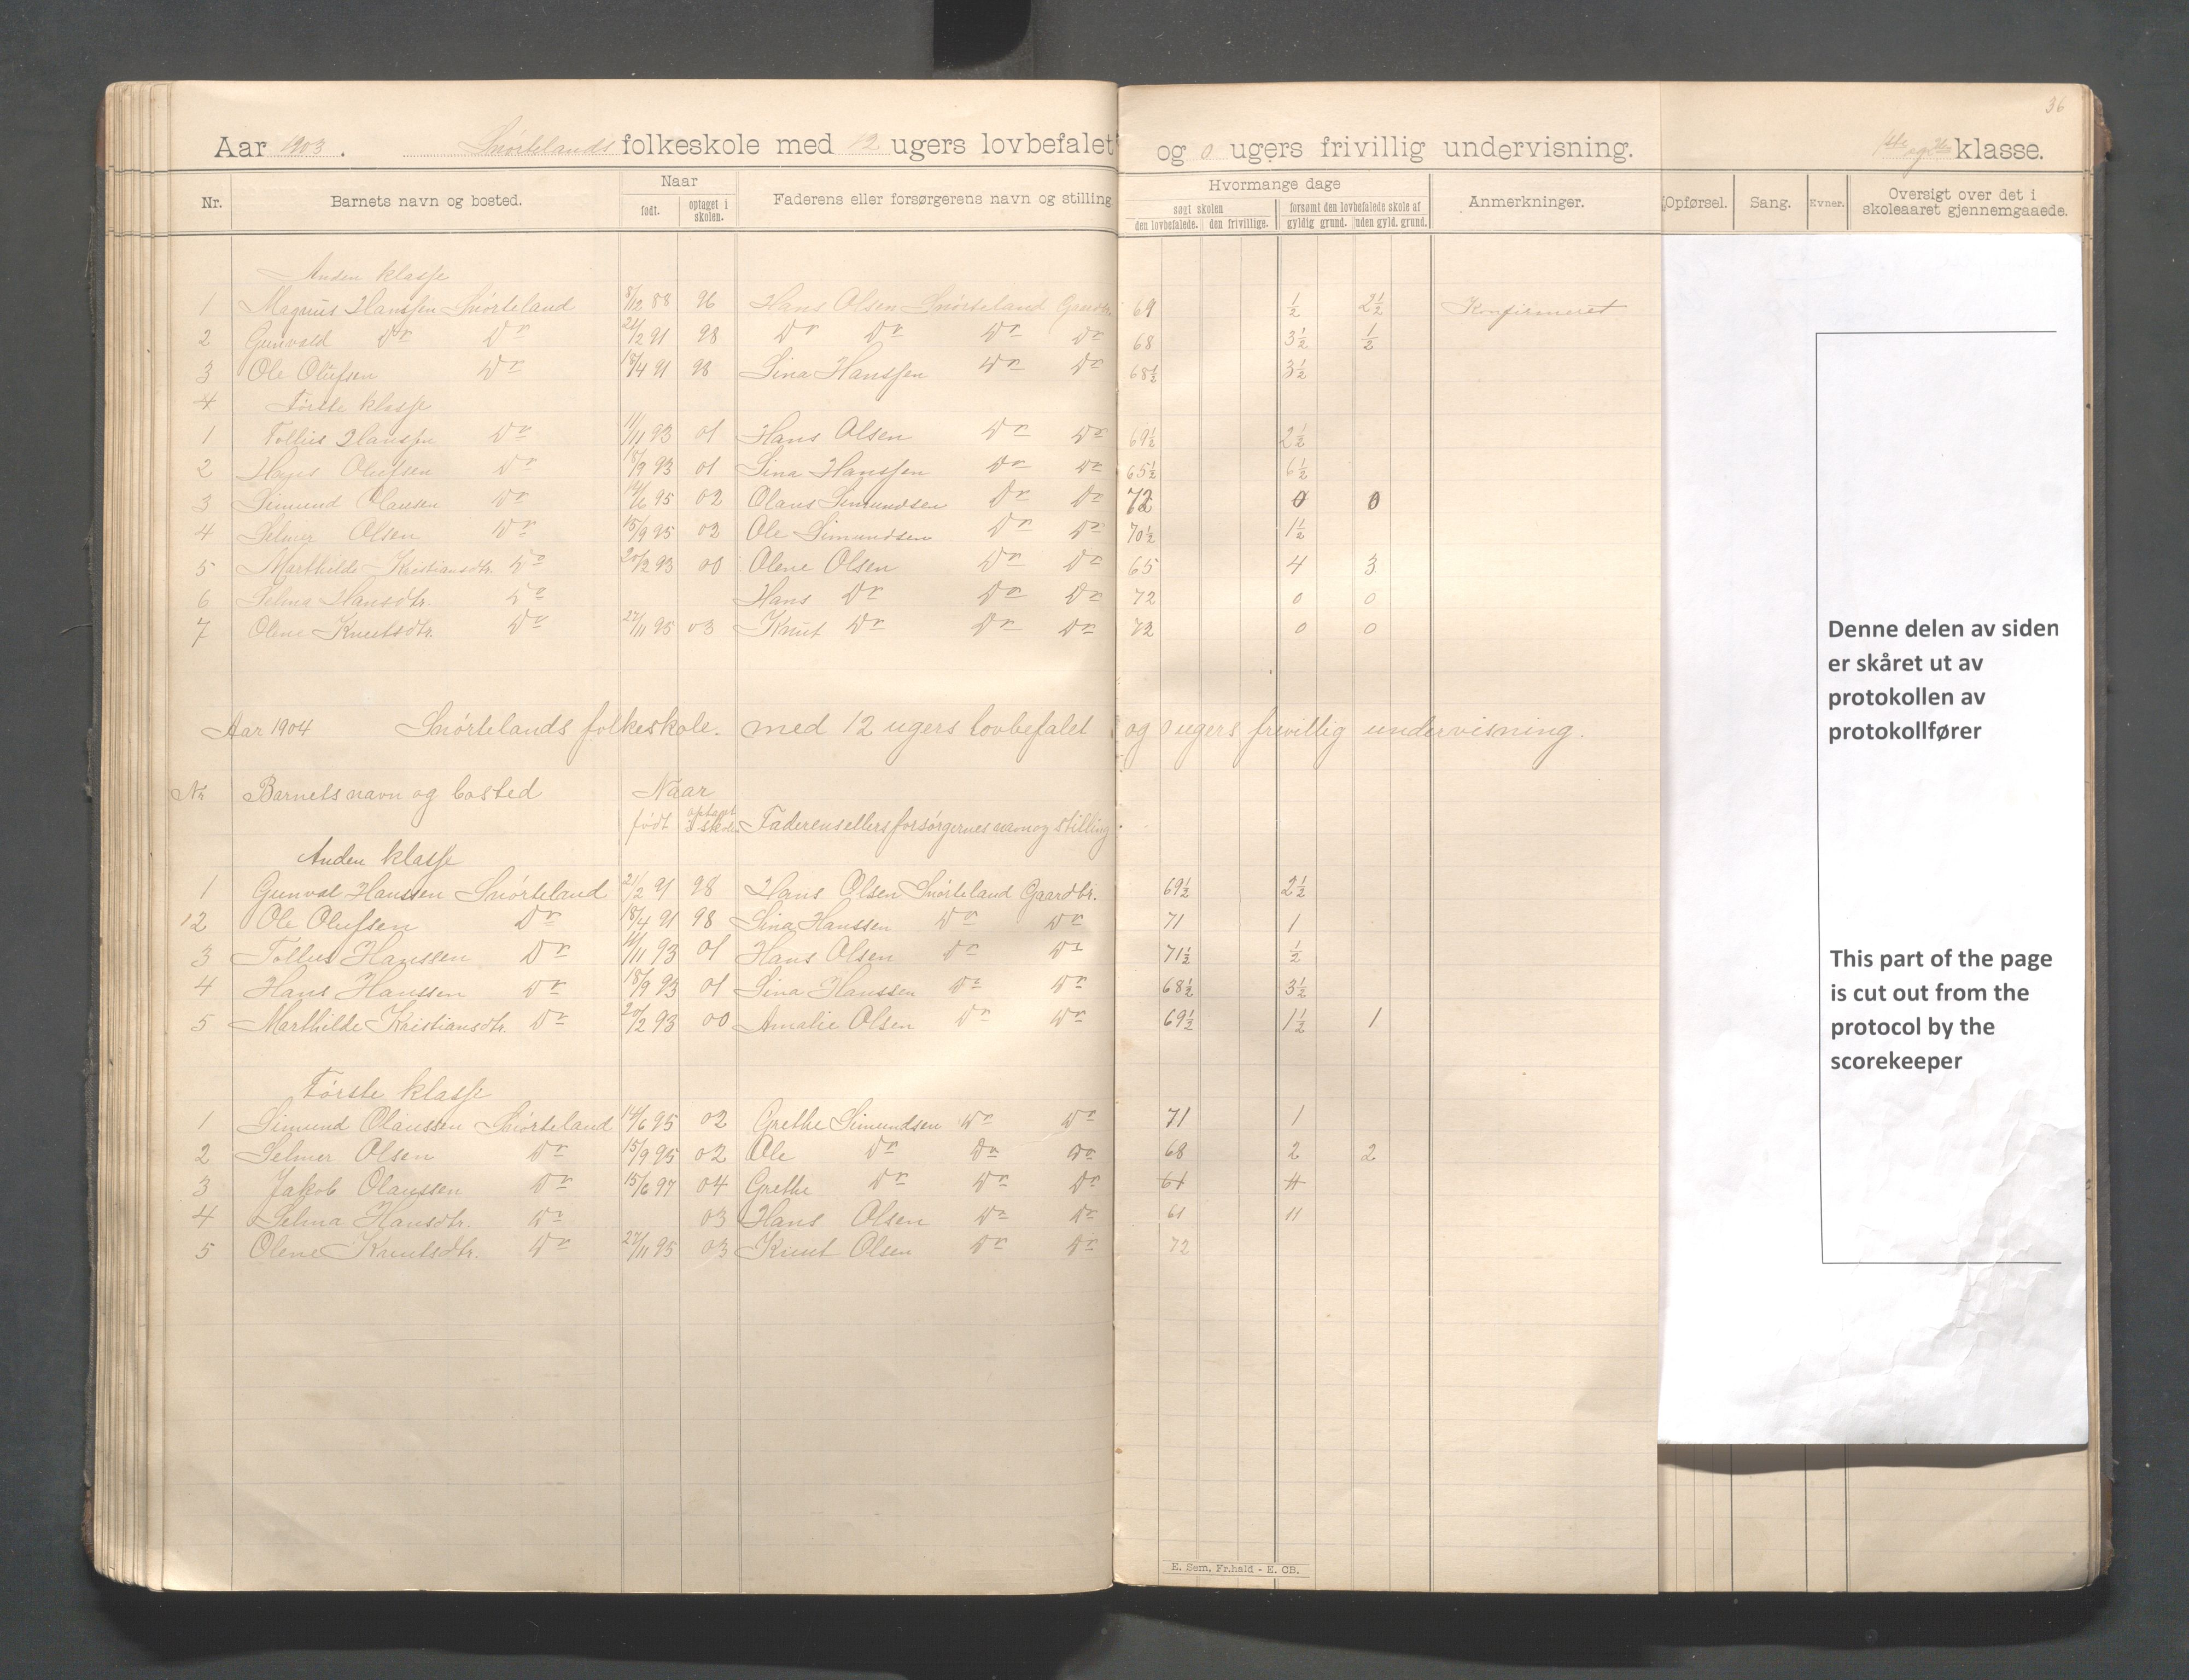 36
Aar 1903. Snørtelands folkeskole med 12 ugers lovbefalet og 0 ugers frivillig undervisning. 1ste og 2den klasse.
Nr. Barnets navn og bosted. Naar født. optaget i skolen. Faderens eller forsørgerens navn og stilling Hvormange dage søgt skolen den lovbefalede. den frivillige. forsømt den lovbefalede skole af gyldig grund. uden gyld. grund. Anmerkninger. Opførsel. Sang. Evner. Oversigt over det i skoleaaret gjennemgaaede.
Anden klasse
1 Magnus Hanssen Snørteland 8/12 88 96 Hans Olsen Snørteland Gaardbr. 69 ½ 2½ Konfirmeret
2 Gunvald Do Do 21/2 91 98 Do Do Do Do 68 3½ ½
3 Ole Olufsen Do 18/4 91 98 Sina Hanssen Do Do 68½ 3½
4 Første klasse
1 Tollius Hanssen Do 11/11 93 01 Hans Olsen Do Do 69½ 2½
2 Hans Olufsen Do 18/9 93 01 Sina Hanssen Do Do 65½ 6½
3 Simund Olausen Do 14/6 95 02 Olaus Simundsen Do Do 72 0 0
4 Selmer Olsen Do 15/9 95 02 Ole Simundsen Do Do 70½ 1½
5 Marthilde Kristiansdtr. Do 20/2 93 00 Olene Olsen Do Do 65 4 3
6 Selma Hansdtr. Do Hans Do Do Do 72 0 0
7 Olene Knutsdtr. Do 27/11 95 03 Knut Do Do Do 72 0 0
Aar 1904 Snørtelands folkeskole. med 12 ugers lovbefalet og 0 ugers frivillig undervisning.
Nr Barnets navn og bosted Naar
født optaget i skole. Faderens ellers forsørgernes navn og stilling.
Anden klasse
1 Gunval Hanssen Snørteland 21/2 91 98 Hans Olsen Snørteland Gaardbr. 69½ 2½
12 Ole Olufsen Do 18/4 91 98 Sina Hanssen Do Do 71 1
3 Tollius Hanssen Do 11/11 93 01 Hans Olsen Do Do 71½ ½
4 Hans Hanssen Do 18/9 93 01 Sina Hanssen Do Do 68½ 3½
5 Marthilde Kristiansdtr. Do 20/2 93 00 Amalie Olsen Do Do 69½ 1½ 1
Første klasse
1 Simund Olaussen Snørteland 14/6 95 02 Grethe Simundsen Do Do 71 1
2 Selmer Olsen Do 15/9 95 02 Ole Do Do Do 68 2 2
3 Jakob Olaussen Do 15/6 97 04 Grethe Do Do Do 61 11
4 Selma Hansdtr. Do 03 Hans Olsen Do Do 61 11
5 Olene Knutsdtr. Do 27/11 95 03 Knut Olsen Do Do 72
E. Sem, Fr.hald - E. CB.
Denne delen av siden
er skåret ut av
protokollen av
protokollfører
This part of the page
is cut out from the
protocol by the
scorekeeper